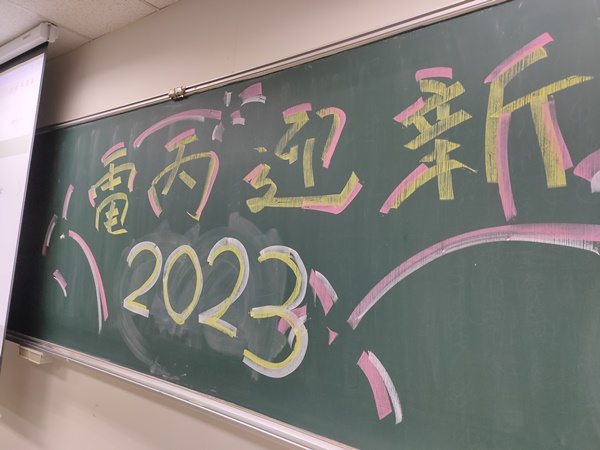 電丙迎新
2023